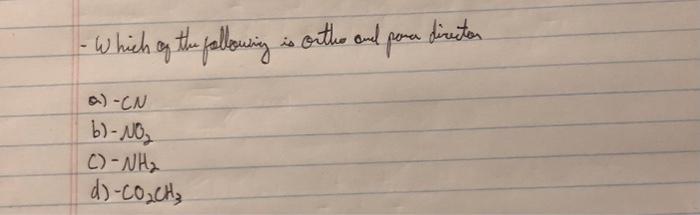 - Which of the following is ortho and para director
a) -CN
b) -NO₂
c) -NH₂
d) -CO₂CH₃